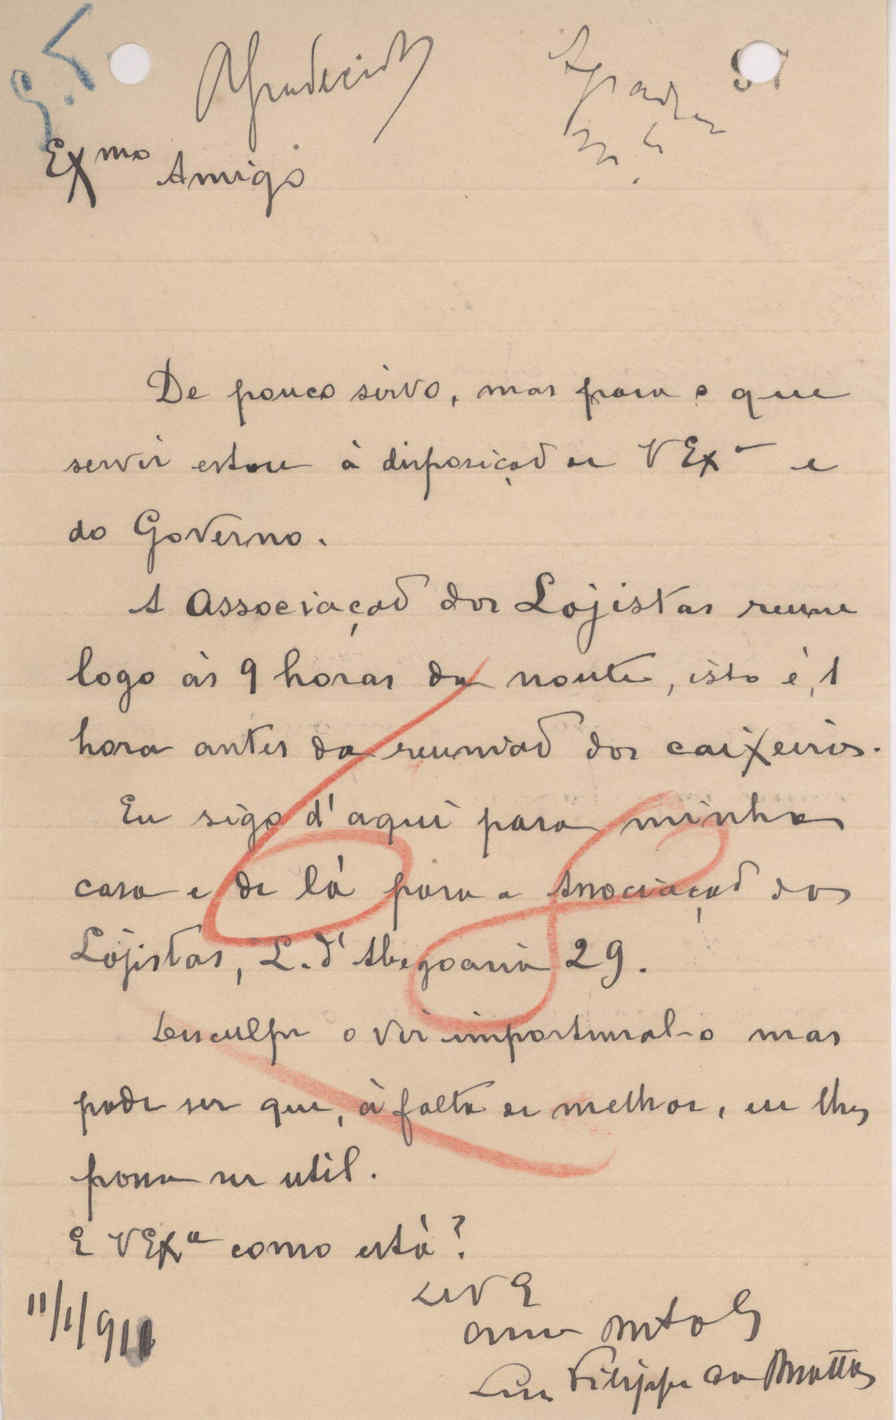 Agradecido
97
Exmo Amigo
De pouco sirvo, mas para o que
servir estou à disposição de V Exª e
do Governo.
A Associação dos Lojistas reune
logo às 9 horas da noute, isto é, 1
hora antes da reunião dos caixeiros.
Eu sigo d'aqui para minha
casa e de lá para a Associação dos
Lojistas, L. d'Abegoaria 29.
Desculpe o vir importunal-o mas
pode ser que, à falta de melhor, eu lhes
possa ser util.
E V Exª como está?
11/1/911
De V E
amº mtº obº
Luis Filippe da Matta